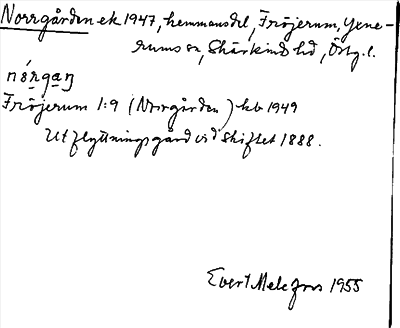 Norrgården ek 1947, hemmansdel, Fröjerum, Yxne-
rums sn, Skärkinds hd, Östg.l.
nórgaŋ
Fröjerum 1:9 (Norrgården) kb 1949
Utflyttningsgård vid skiftet 1888.
Evert Melefors 1955